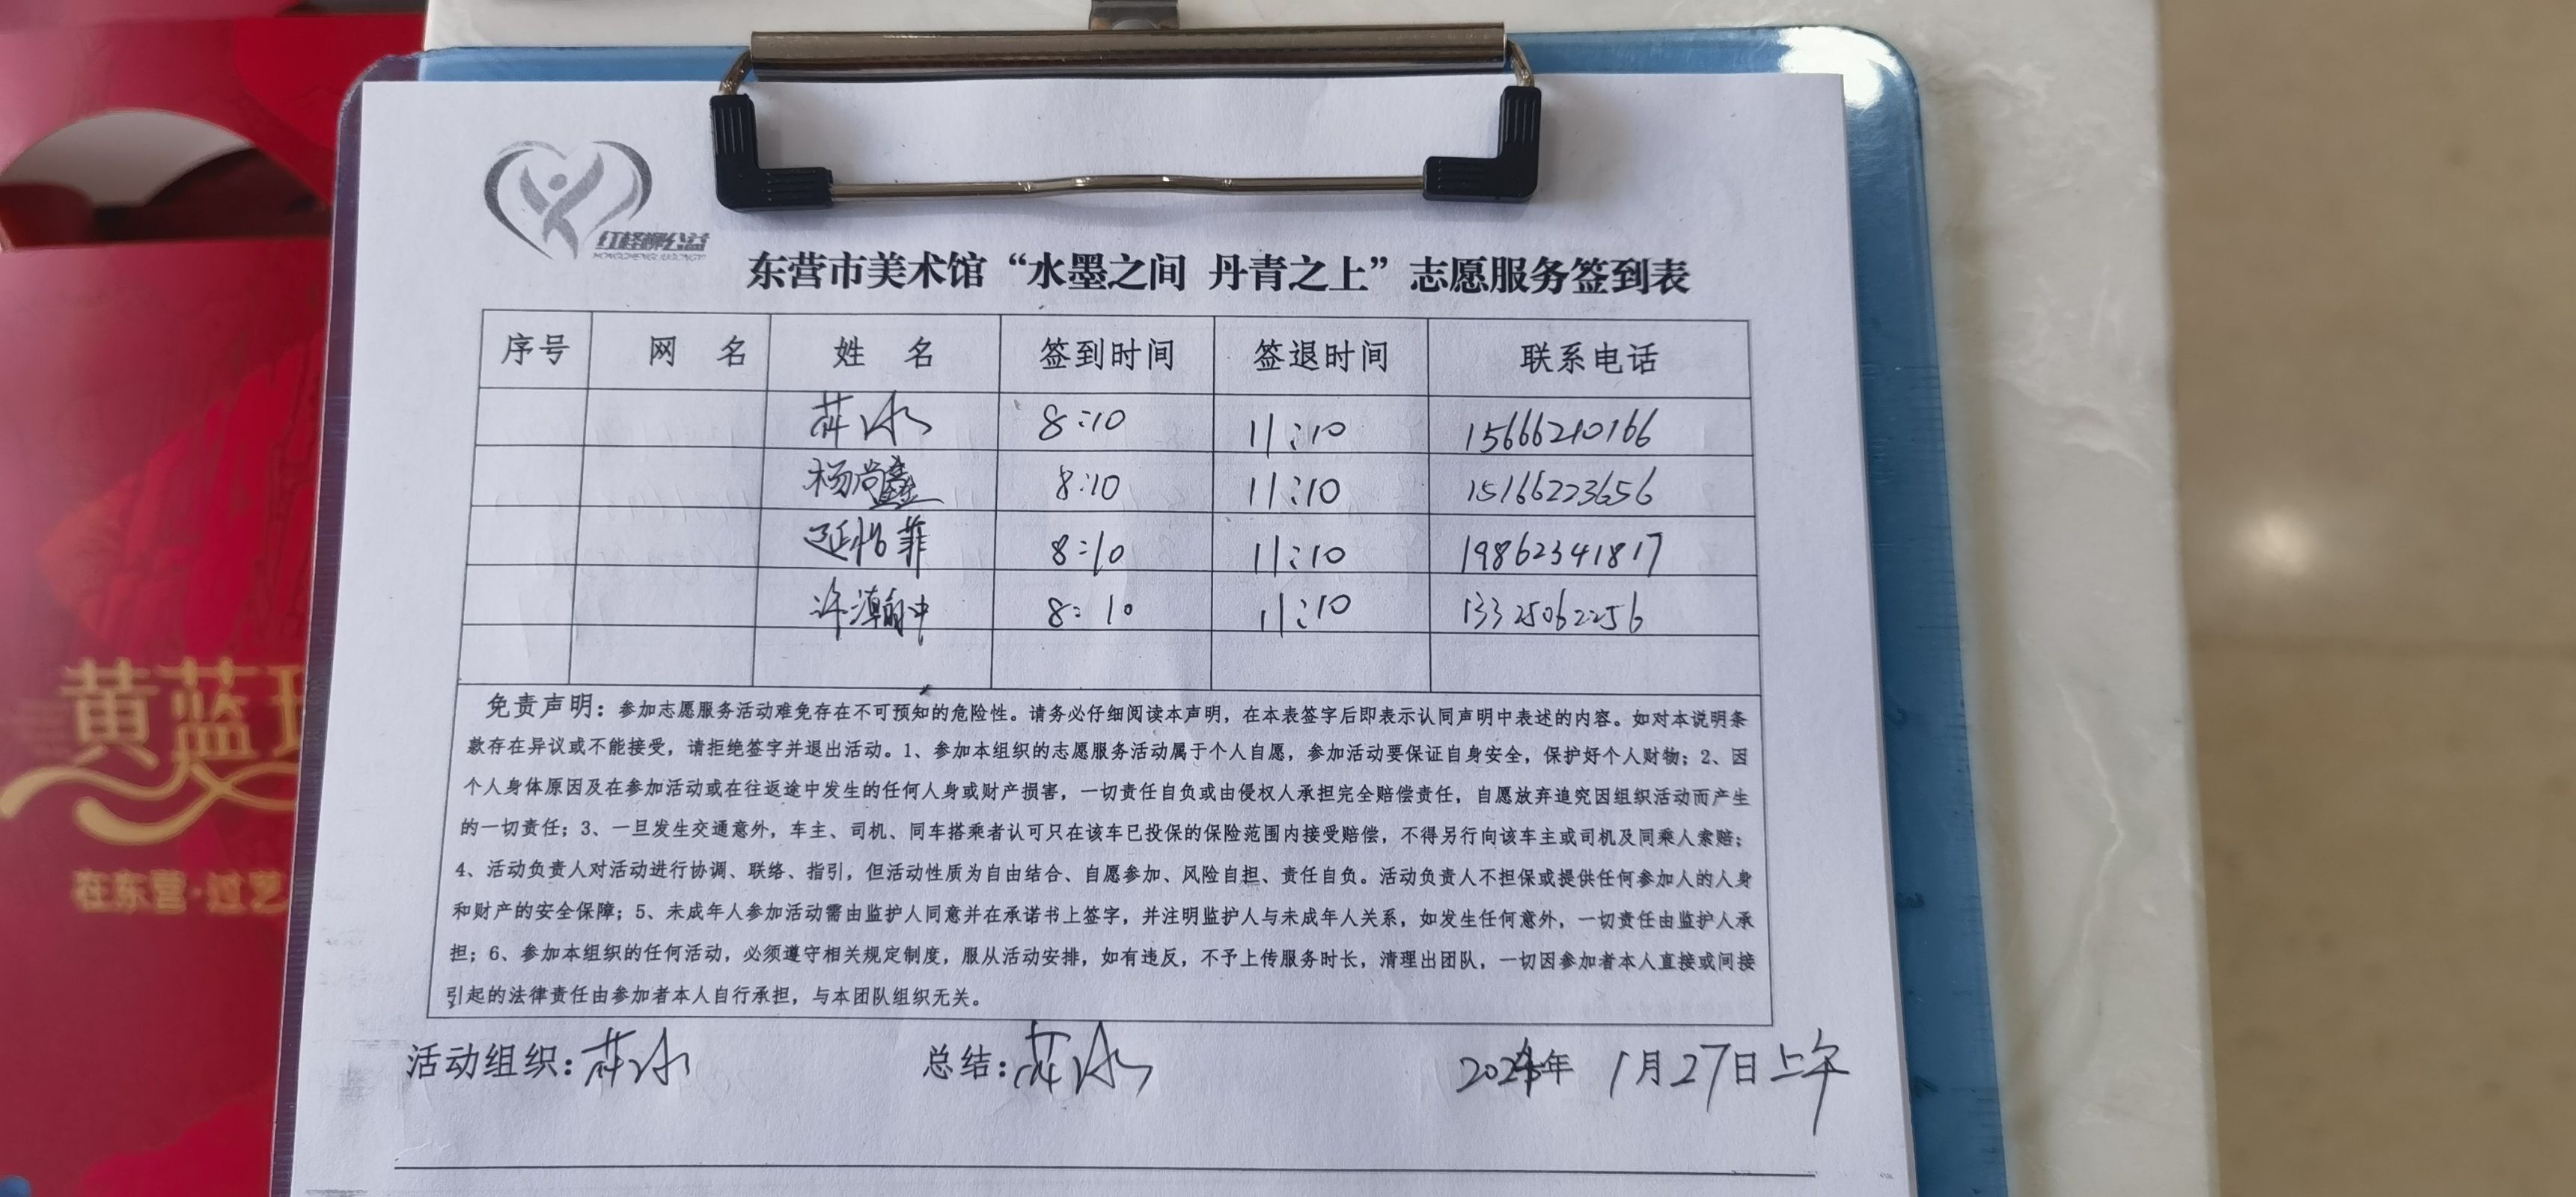 红柽柳公益
东营市美术馆“水墨之间 丹青之上”志愿服务签到表
序号 网 名 姓 名 签到时间 签退时间 联系电话
薛冰 8:10 11:10 15666210166
杨尚鑫 8:10 11:10 15166223656
延怡菲 8:10 11:10 19862341817
许瀚冲 8:10 11:10 13325062256
免责声明：参加志愿服务活动难免存在不可预知的危险性。请务必仔细阅读本声明，在本表签字后即表示认同声明中表述的内容。如对本说明条
款存在异议或不能接受，请拒绝签字并退出活动。1、参加本组织的志愿服务活动属于个人自愿，参加活动要保证自身安全，保护好个人财物；2、因
个人身体原因及在参加活动或在往返途中发生的任何人身或财产损害，一切责任自负或由侵权人承担完全赔偿责任，自愿放弃追究因组织活动而产生
的一切责任；3、一旦发生交通意外，车主、司机、同车搭乘者认可只在该车已投保的保险范围内接受赔偿，不得另行向该车主或司机及同乘人索赔；
4、活动负责人对活动进行协调、联络、指引，但活动性质为自由结合、自愿参加、风险自担、责任自负。活动负责人不担保或提供任何参加人的人身
和财产的安全保障；5、未成年人参加活动需由监护人同意并在承诺书上签字，并注明监护人与未成年人关系，如发生任何意外，一切责任由监护人承
担；6、参加本组织的任何活动，必须遵守相关规定制度，服从活动安排，如有违反，不予上传服务时长，清理出团队，一切因参加者本人直接或间接
引起的法律责任由参加者本人自行承担，与本团队组织无关。
活动组织：薛冰 总结：薛冰 2024年 1月27日上午
黄蓝
在东营·过艺